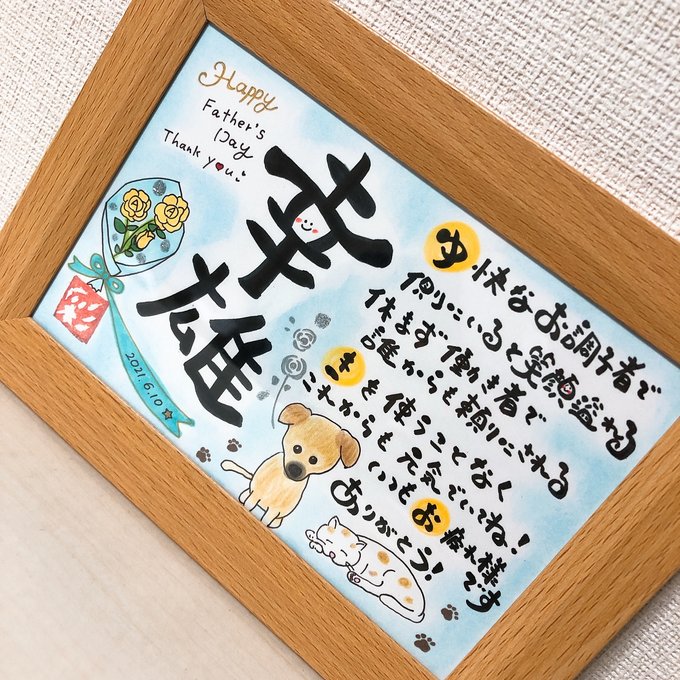 Happy
Father's
Day
Thank you
幸雄
ゆ快なお調子者で
側りにいると笑顔溢れる
休まず働き者で
誰からも頼りにされる
きを使うことなく
これからも元気でいてね!
いつもお疲れ様です
ありがとう!
2021.6.10